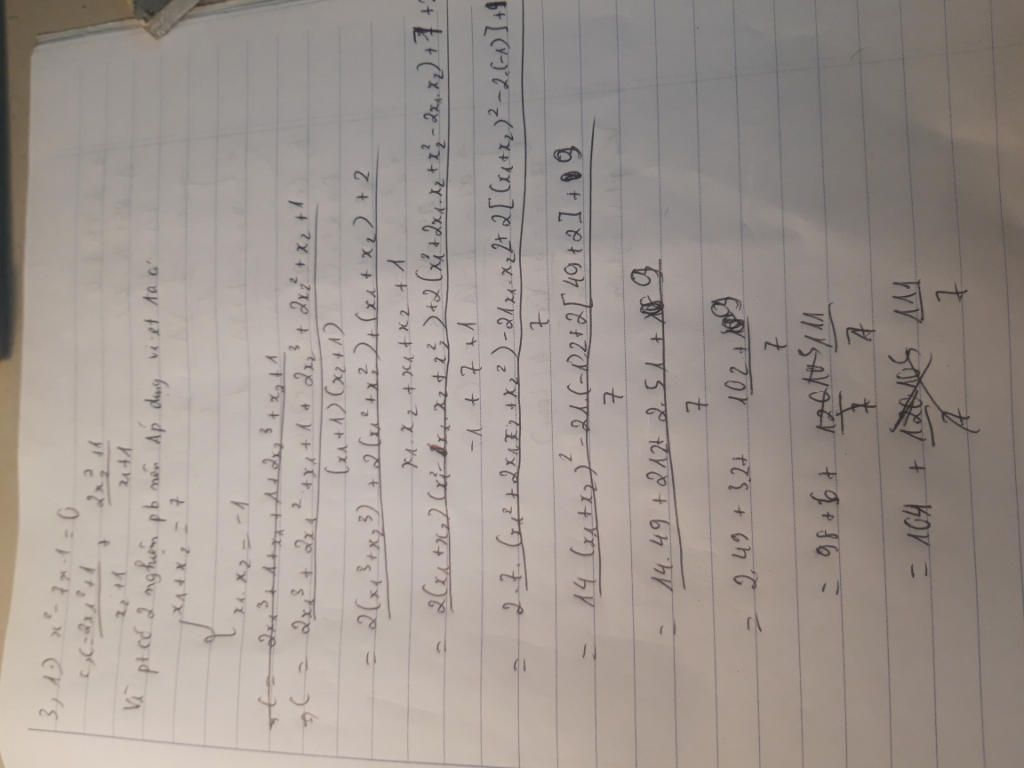 3, 1) x² - 7x - 1 = 0
C = (2x₁² + 1)/(x₂ + 1) + (2x₂² + 1)/(x₁ + 1)
Vì ptcó 2 nghiệm pb nên áp dụng vi-ét ta có
{ x₁ + x₂ = 7
x₁x₂ = -1
=> C = (2x₁³ + 2x₁² + x₁ + 1 + 2x₂³ + 2x₂² + x₂ + 1)/((x₁+1)(x₂+1))
= (2(x₁³ + x₂³) + 2(x₁² + x₂²) + (x₁ + x₂) + 2)/(x₁x₂ + x₁ + x₂ + 1)
= (2(x₁ + x₂)(x₁² - x₁x₂ + x₂²) + 2(x₁² + 2x₁x₂ + x₂² - 2x₁x₂) + 7 + 2)/(-1 + 7 + 1)
= (2.7.(x₁² + 2x₁x₂ + x₂²) - 21x₁.x₂.2 + 2[(x₁+x₂)² - 2.(-1)] + 9)/7
= (14(x₁ + x₂)² - 21(-1)2 + 2[49 + 2] + 9)/7
= (14.49 + 21.2 + 2.51 + 9)/7
= 2.49 + 3.2 + (102 + 9)/7
= 98 + 6 + 111/7
= 104 + 111/7